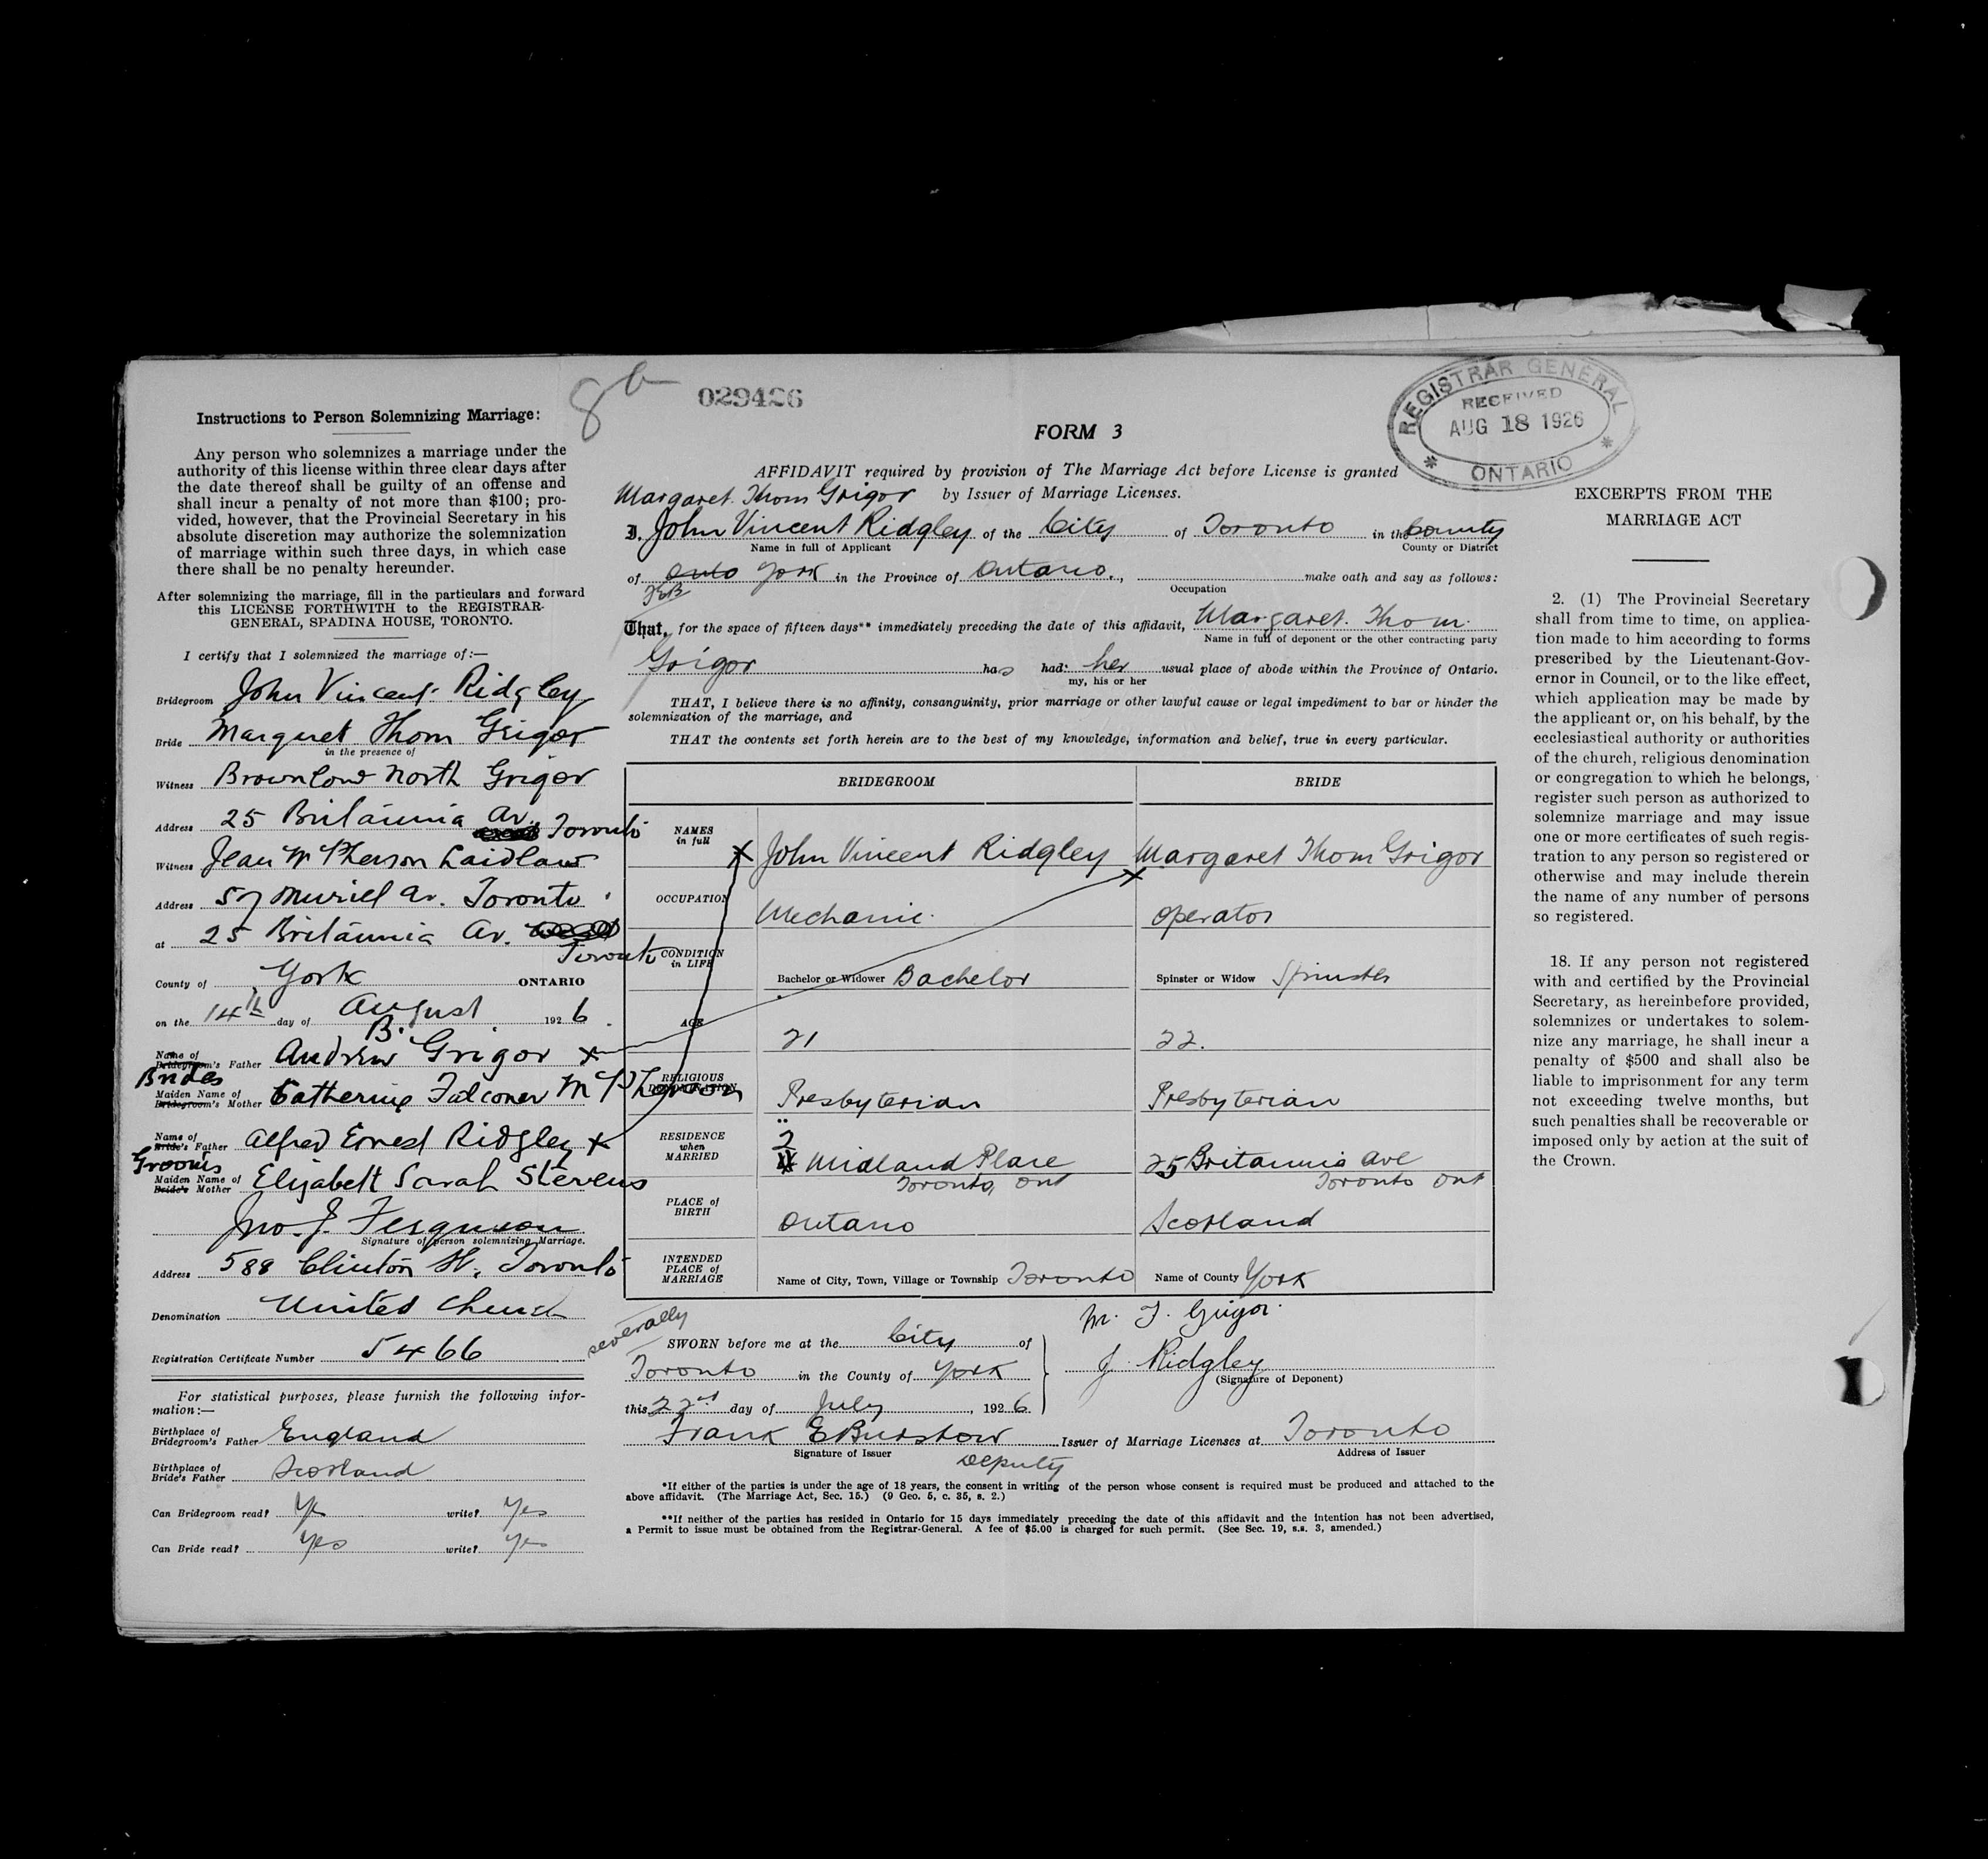 8
029426
REGISTRAR GENERAL
RECEIVED
AUG 18 1926
ONTARIO
Instructions to Person Solemnizing Marriage:
Any person who solemnizes a marriage under the
authority of this license within three clear days after
the date thereof shall be guilty of an offense and
shall incur a penalty of not more than $100; pro-
vided, however, that the Provincial Secretary in his
absolute discretion may authorize the solemnization
of marriage within such three days, in which case
there shall be no penalty hereunder.
After solemnizing the marriage, fill in the particulars and forward
this LICENSE FORTHWITH to the REGISTRAR-
GENERAL, SPADINA HOUSE, TORONTO.
I certify that I solemnized the marriage of:—
Bridegroom John Vincent Ridgley
Bride Margaret Thom Grigor
in the presence of
Witness Brownlow North Grigor
Address 25 Britannia Av. Toronto
Witness Jean McPherson Laidlaw
Address 57 Muriel Av. Toronto
at 25 Britannia Av.
Toronto
County of York ONTARIO
on the 14th day of August 1926.
B.
Name of
Bridegroom's Father Andrew Grigor x
Brides
Maiden Name of
Bridegroom's Mother Catherine Falconer McPherson
Name of
Bride's Father Alfred Ernest Ridgley x
Grooms
Maiden Name of
Bride's Mother Elizabeth Sarah Stevens
Jno. J. Ferguson
Signature of person solemnizing Marriage.
Address 588 Clinton St., Toronto
Denomination United Church
Registration Certificate Number 5466
For statistical purposes, please furnish the following infor-
mation:—
Birthplace of
Bridegroom's Father England
Birthplace of
Bride's Father Scotland
Can Bridegroom read? Yes write? Yes
Can Bride read? Yes write? Yes
FORM 3
AFFIDAVIT required by provision of The Marriage Act before License is granted
Margaret Thom Grigor by Issuer of Marriage Licenses.
I. John Vincent Ridgley of the City of Toronto in the County
Name in full of Applicant County or District
of Onto York in the Province of Ontario., make oath and say as follows:
FEB Occupation
That, for the space of fifteen days** immediately preceding the date of this affidavit, Margaret Thom
Name in full of deponent or the other contracting party
Grigor has had her usual place of abode within the Province of Ontario.
my, his or her
THAT, I believe there is no affinity, consanguinity, prior marriage or other lawful cause or legal impediment to bar or hinder the
solemnization of the marriage, and
THAT the contents set forth herein are to the best of my knowledge, information and belief, true in every particular.
BRIDEGROOM BRIDE
NAMES
in full x John Vincent Ridgley Margaret Thom Grigor
x
OCCUPATION Mechanic Operator
CONDITION
in LIFE Bachelor or Widower Bachelor Spinster or Widow Spinster
AGE 21 22.
RELIGIOUS
DENOMINATION Presbyterian Presbyterian
RESIDENCE
when
MARRIED 2 Midland Place 25 Britannia Ave
Toronto, Ont Toronto Ont
PLACE of
BIRTH Ontario Scotland
INTENDED
PLACE of
MARRIAGE Name of City, Town, Village or Township Toronto Name of County York
severally
SWORN before me at the City of
Toronto in the County of York
this 22nd day of July, 1926
M. T. Grigor.
J. Ridgley
(Signature of Deponent)
Frank E Burstow Issuer of Marriage Licenses at Toronto
Signature of Issuer Address of Issuer
Deputy
*If either of the parties is under the age of 18 years, the consent in writing of the person whose consent is required must be produced and attached to the
above affidavit. (The Marriage Act, Sec. 15.) (9 Geo. 5, c. 35, s. 2.)
**If neither of the parties has resided in Ontario for 15 days immediately preceding the date of this affidavit and the intention has not been advertised,
a Permit to issue must be obtained from the Registrar-General. A fee of $5.00 is charged for such permit. (See Sec. 19, s.s. 3, amended.)
EXCERPTS FROM THE
MARRIAGE ACT
2. (1) The Provincial Secretary
shall from time to time, on applica-
tion made to him according to forms
prescribed by the Lieutenant-Gov-
ernor in Council, or to the like effect,
which application may be made by
the applicant or, on his behalf, by the
ecclesiastical authority or authorities
of the church, religious denomination
or congregation to which he belongs,
register such person as authorized to
solemnize marriage and may issue
one or more certificates of such regis-
tration to any person so registered or
otherwise and may include therein
the name of any number of persons
so registered.
18. If any person not registered
with and certified by the Provincial
Secretary, as hereinbefore provided,
solemnizes or undertakes to solem-
nize any marriage, he shall incur a
penalty of $500 and shall also be
liable to imprisonment for any term
not exceeding twelve months, but
such penalties shall be recoverable or
imposed only by action at the suit of
the Crown.